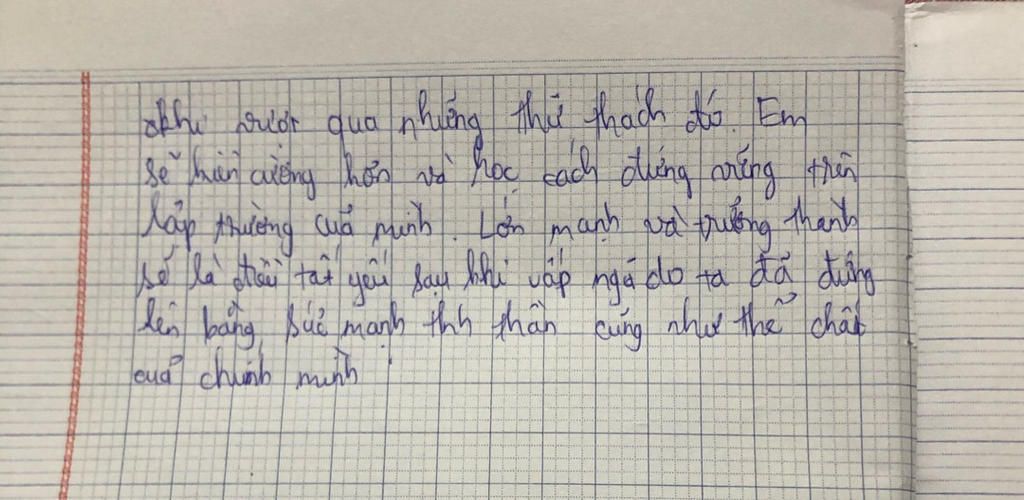 khi vượt qua những thử thách đó. Em
sẽ kiên cường hơn và học cách đứng vững trên
lập trường của mình. Lớn mạnh và trưởng thành
sẽ là điều tất yếu sau khi vấp ngã do ta đã đứng
lên bằng sức mạnh tinh thần cũng như thể chất
của chính mình